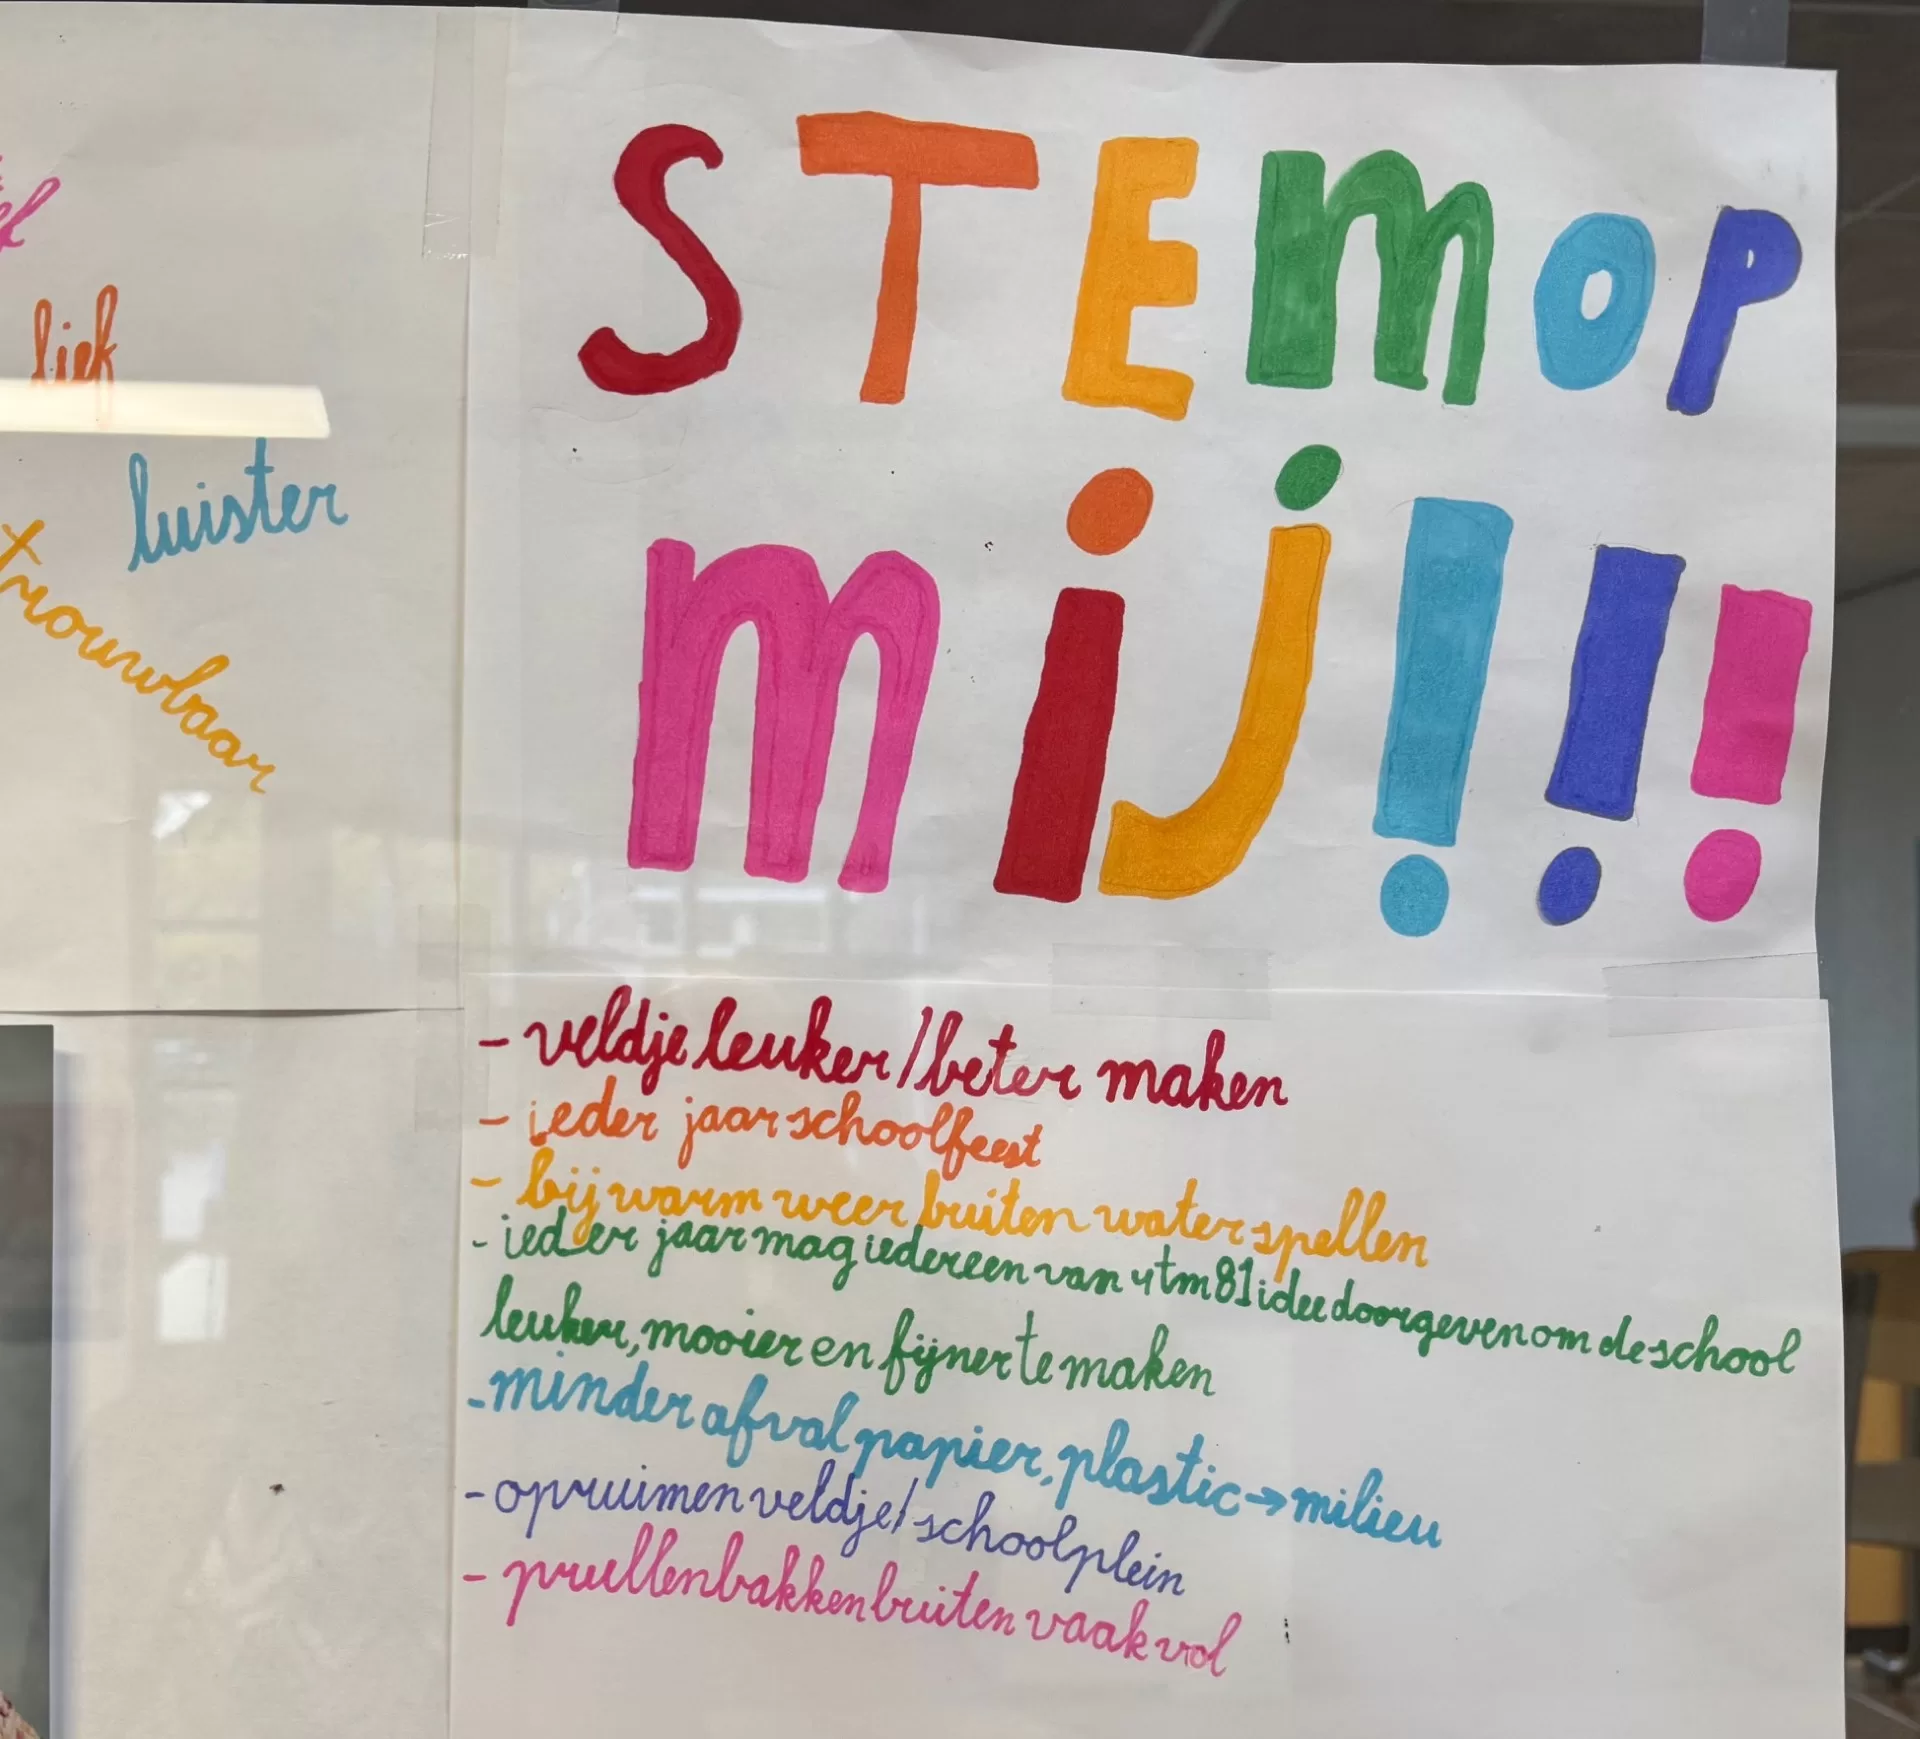 lief
luister
trouwbaar
STEM OP
mij!!!
- veldje leuker/beter maken
- ieder jaar schoolfeest
- bij warm weer buiten water spellen
- ieder jaar mag iedereen van 4tm8 1 idee doorgeven om de school
leuker, mooier en fijner te maken
- minder afval papier, plastic → milieu
- opruimen veldje/schoolplein
- prullenbakken buiten vaak vol